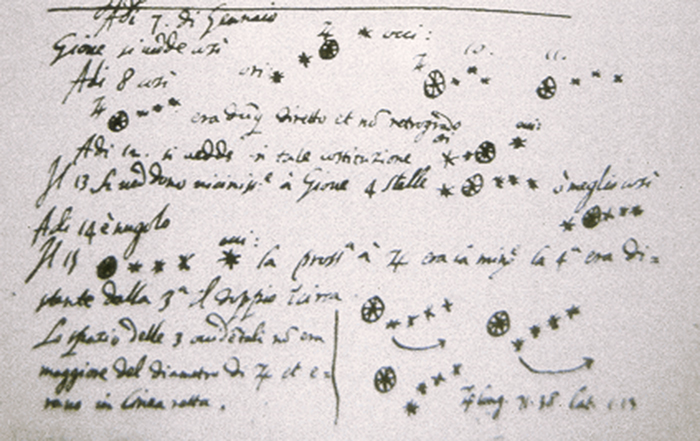 Adi 7. di Gennaio
Gione si uedde così ori: ♃ occi:
Adi 8 così ♃ 10. 11.
♃ era dūq diretto et nō retrogrado
Adi 12. si uedde in tale costituzione ori occi:
Il 13 si ueddono uiciniss.e à Gioue 4 stelle ò meglio così
Adi 14 è nugolo
Il 15 occi: la pross.a à ♃ era la min.e la 4.a era di=
stante dalla 3.a il doppio circa
Lo spazio delle 3 occidētali nō era
maggiore del diametro di ♃ et e=
rano in linea retta.
♃ long. 71.38 lat. 1.13